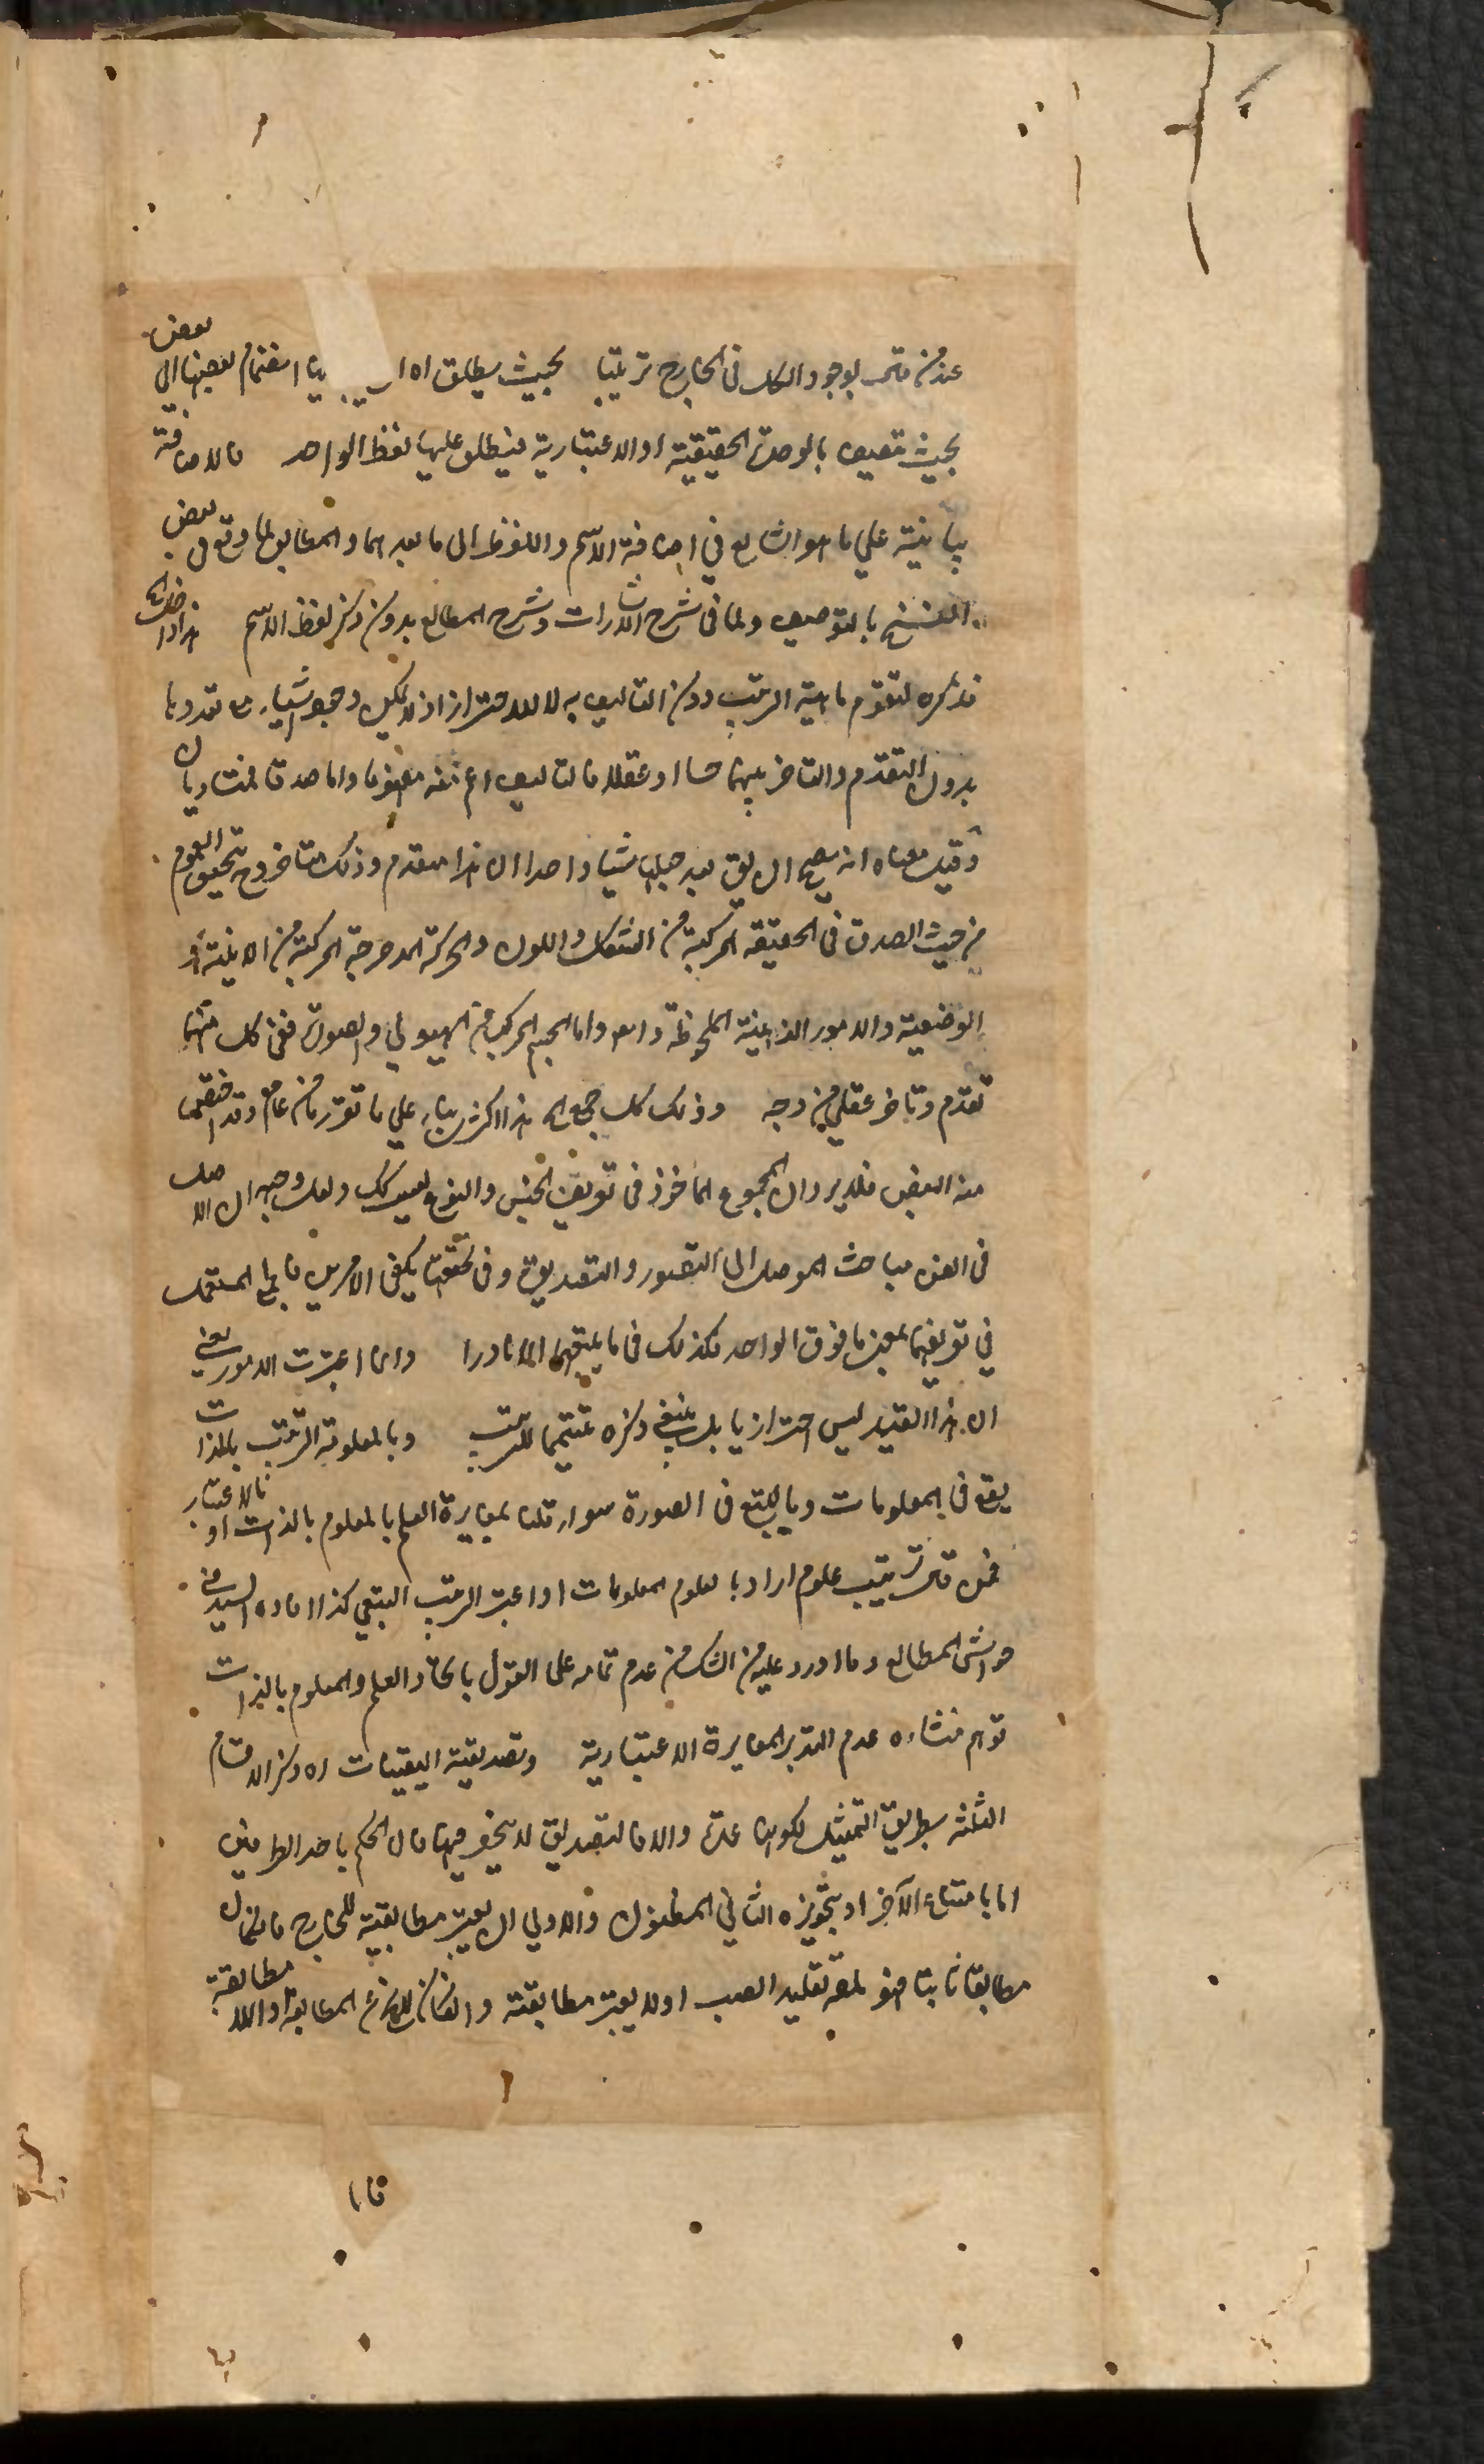 عند من قال بوجود الكل في الخارج ترتيبا بحيث يطلق اه اى بيا انضمام بعضها الى بعض
بحيث تتصف بالوحدة الحقيقية او الاعتبارية فينطلق عليها لفظ الواحد فالاضافة
بيانية على ما هو الشايع في اضافة الاسم واللفظ الى ما بعدهما والمطابق لما وقع في بعض
النسخ بالتوصيف ولما في شرح الاشارات وشرح المطالع بدون ذكر لفظ الاسم
فذكره لتقوم ماهية الترتيب دون التاليف به لا للاحتراز اذ لا يمكن وجود اشياء مع تعددها
بدون التقدم والتاخر بينها حسا او عقلا فالتاليف اعم منه مفهوما واما صدقا فمتساويان
وقيل معناه انه يصح ان يق بعد جعلها شيئا واحدا ان هذا متقدم وذلك متاخر وح تحقيق العموم
من حيث الصدق في الحقيقة المركبة من الشكل واللون والحركة المدحرجة المركبة من الاينية و
الوضعية والامور الذهنية الملحوظة دفعة واما الجسم المركب من الهيولي والصورة ففي كل منهما
تقدم وتاخر عقلي من وجه وكذلك كل جمع اه هذا اكثري بناء على ما تقرر من عام وقد خص
منه البعض فلا يرد ان المجموع الماخوذ في تعريف الجنس والنوع ليس كك ولعل وجهه ان الاصل
في الفن مباحث الموصل الى التصور والتصديق وفي تحققهما يكفي الامرين فالجمع المستعمل
في تعريفهما بمعنى ما فوق الواحد فكذلك في ما يليهما الا نادرا وانما اعتبرت الامور يعني
ان هذا القيد ليس احترازيا بل ينبغي ذكره تتميما للترتيب وبالمعلومة الترتيب بالذات
يقع في المعلومات وبالتبع في الصورة سواء قلنا بمغايرة العلم بالمعلوم بالذات او بالاعتبار
فمن قال ترتيب علوم اراد بالعلوم المعلومات او اعتبر الترتيب التبعي كذا افاده السيد في
حواشى المطالع وما اورد عليه من الشك من عدم تمامه على القول باتحاد العلم والمعلوم بالذات
توهم منشاءه عدم التدبر المغايرة الاعتبارية وتصديقية اليقينات اه ذكر الاقسام
الثلثة بطريق التمثيل لكونها عمدة والا فالتصديق لا ينحصر فيها فان الحكم باحد الطرفين
اما بامتناع الآخر او بتجويزه الثاني المظنون والاولى ان يعتبر مطابقيته للخارج فان كان
مطابقا ثابتا فهو لمعه تقليد المصيب اولا يعتبر مطابقته وان كان للمانع المطابقة او اللا مطابقة
فا ا